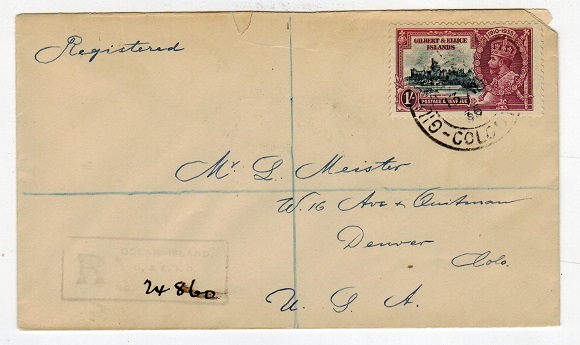 Registered
1910-1935
GILBERT & ELLICE
ISLANDS
POSTAGE & REVENUE
1/-
COLONY
Mr L. Meister
W. 16 Ave & Quitman
Denver
Colo.
U. S. A.
OCEAN ISLAND
R
24860